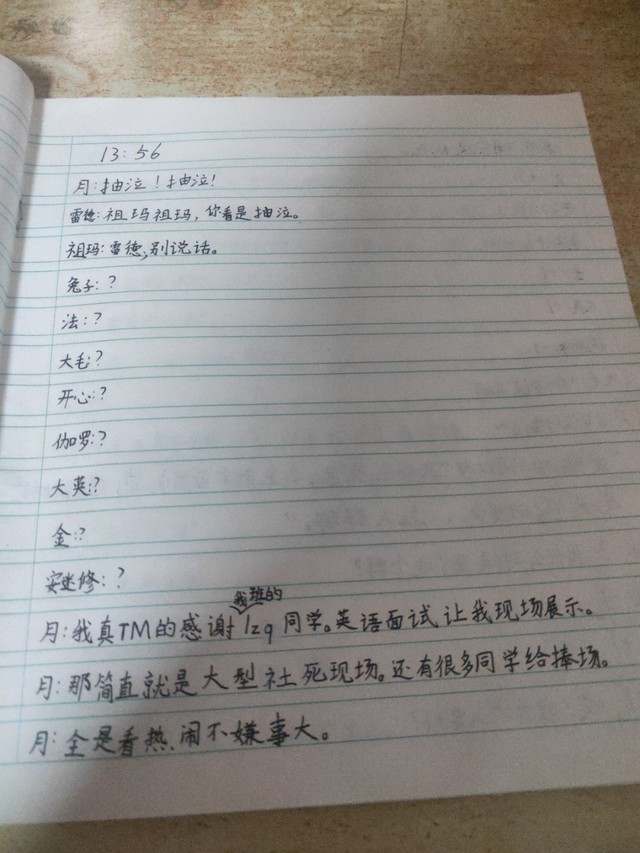 13:56
月:抽泣!抽泣!
雷德:祖玛祖玛,你看是抽泣。
祖玛:雷德,别说话。
兔子:?
法:?
大毛:?
开心:?
伽罗:?
大英:?
金:?
安迷修:?
我班的
月:我真TM的感谢lzq同学。英语面试让我现场展示。
月:那简直就是大型社死现场。还有很多同学给捧场。
月:全是看热、闹不嫌事大。